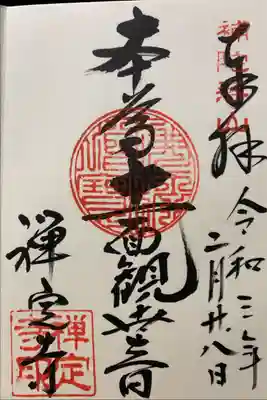 奉拝
令和三年
二月廿八日
本尊十一面觀世音
禅定寺
禅定
寺印